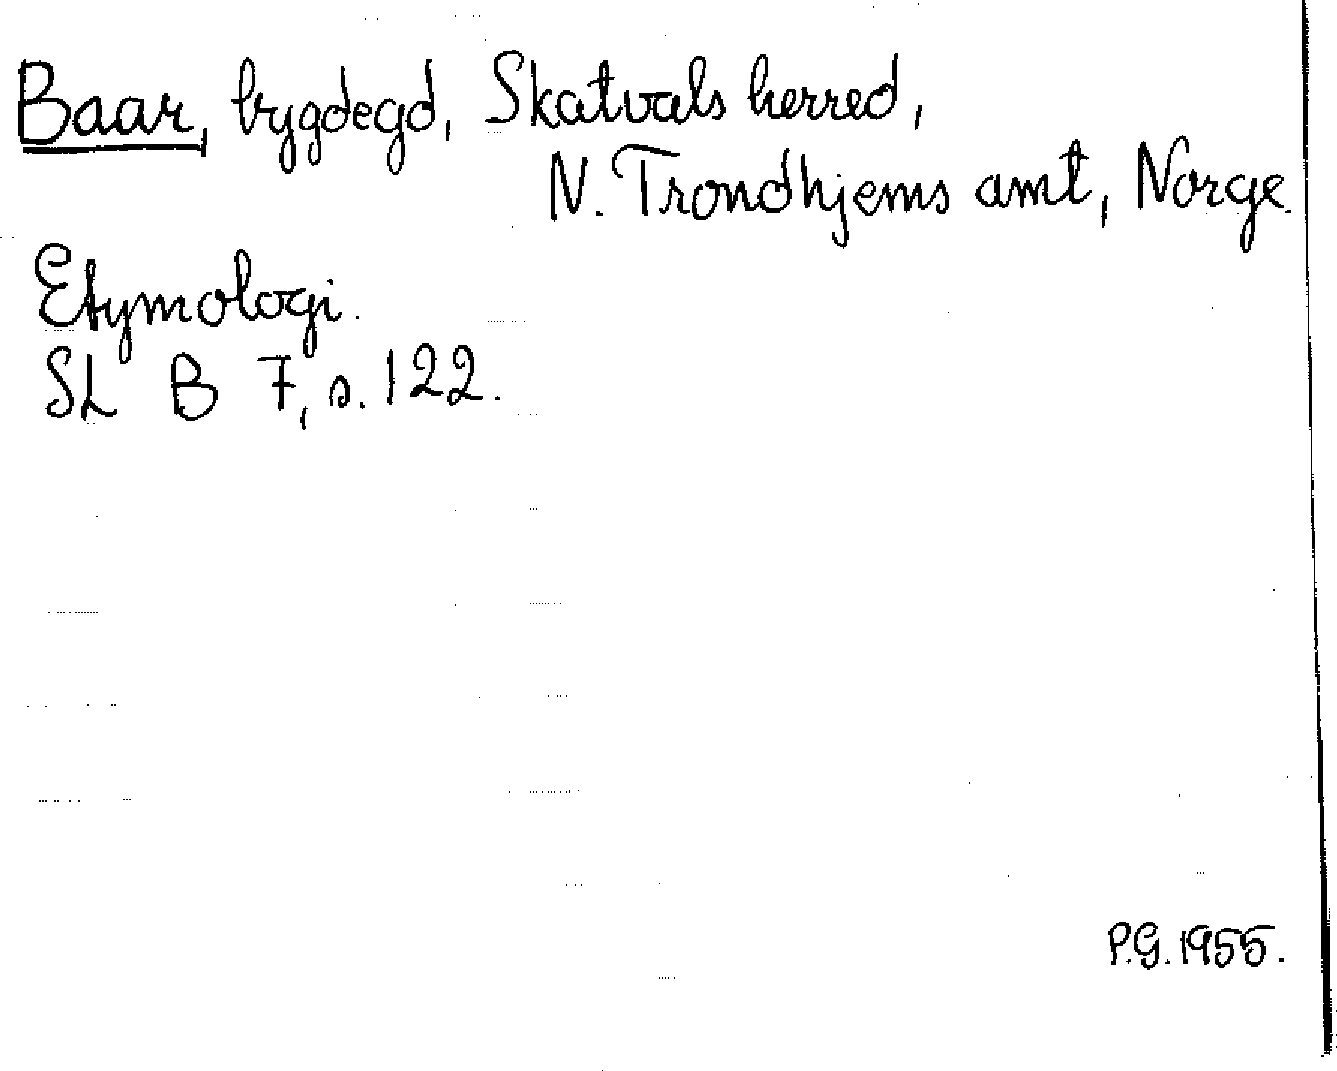 Baar, bygdegd, Skatvals herred,
N. Trondhjems amt, Norge.
Etymologi.
SL B 7, s. 122.
P.G. 1955.